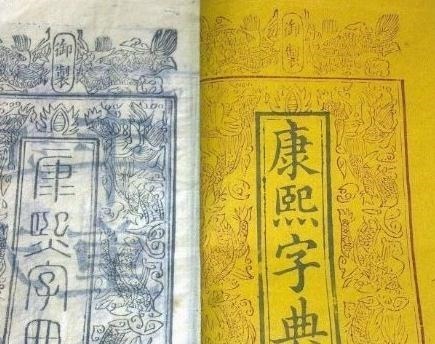 御製
康熙字典
御製
康熙字典